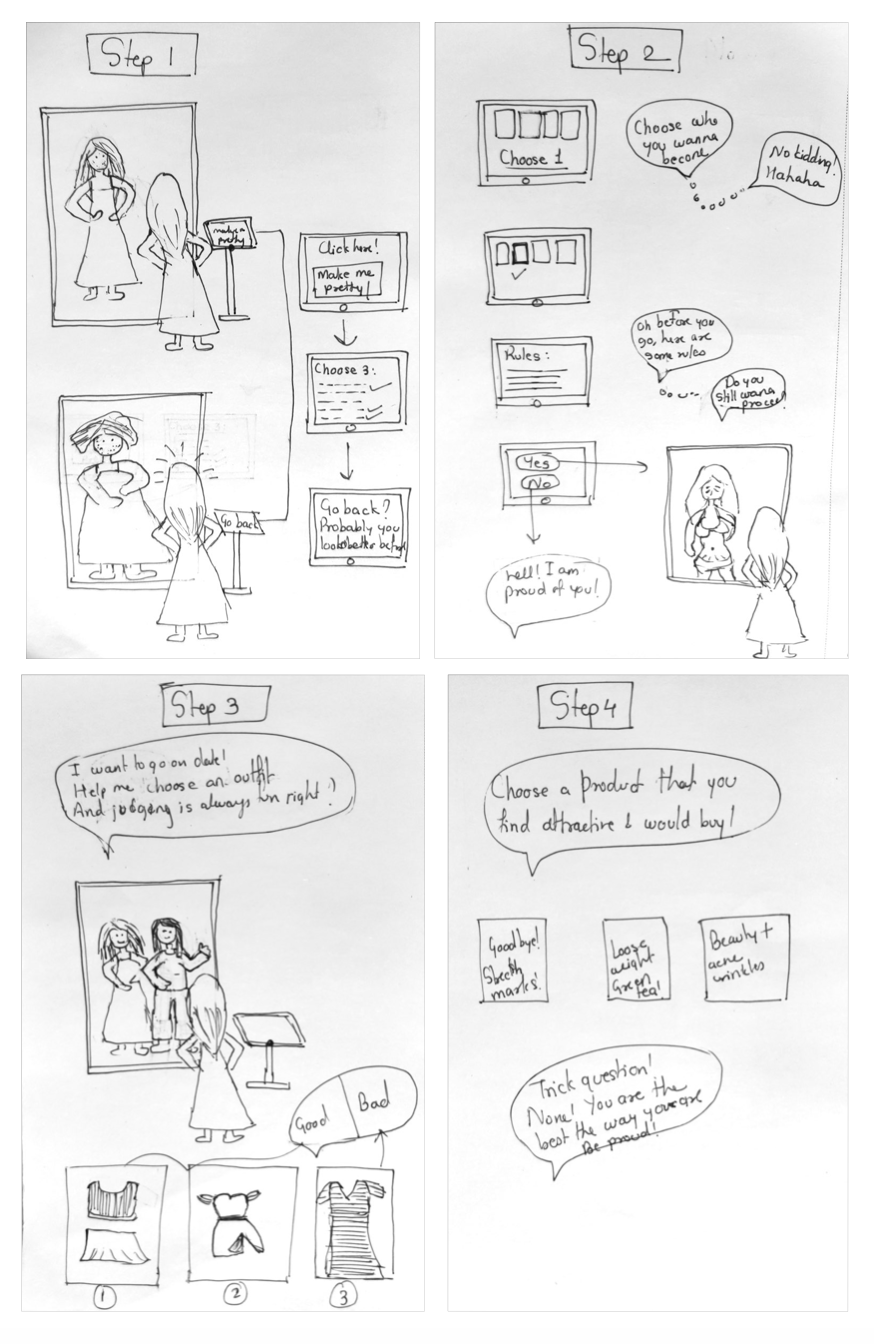 Step 1
make me
pretty
Click here!
Make me
pretty!
Choose 3:
Go back
Go back?
Probably you
looked better before
Step 2
Choose 1
Choose who
you wanna
become
No kidding!
Hahaha
Rules:
Oh before you
go, here are
some rules
Do you
still wanna
proceed?
Yes
No
Well! I am
proud of you!
Step 3
I want to go on date!
Help me choose an outfit
And judging is always fun right?
Good
Bad
1
2
3
Step 4
Choose a product that you
find attractive & would buy!
Goodbye!
Stretch
marks!
Loose
weight
Green
tea!
Beauty +
acne
wrinkles
Trick question!
None! You are the
best the way you are
Be proud!